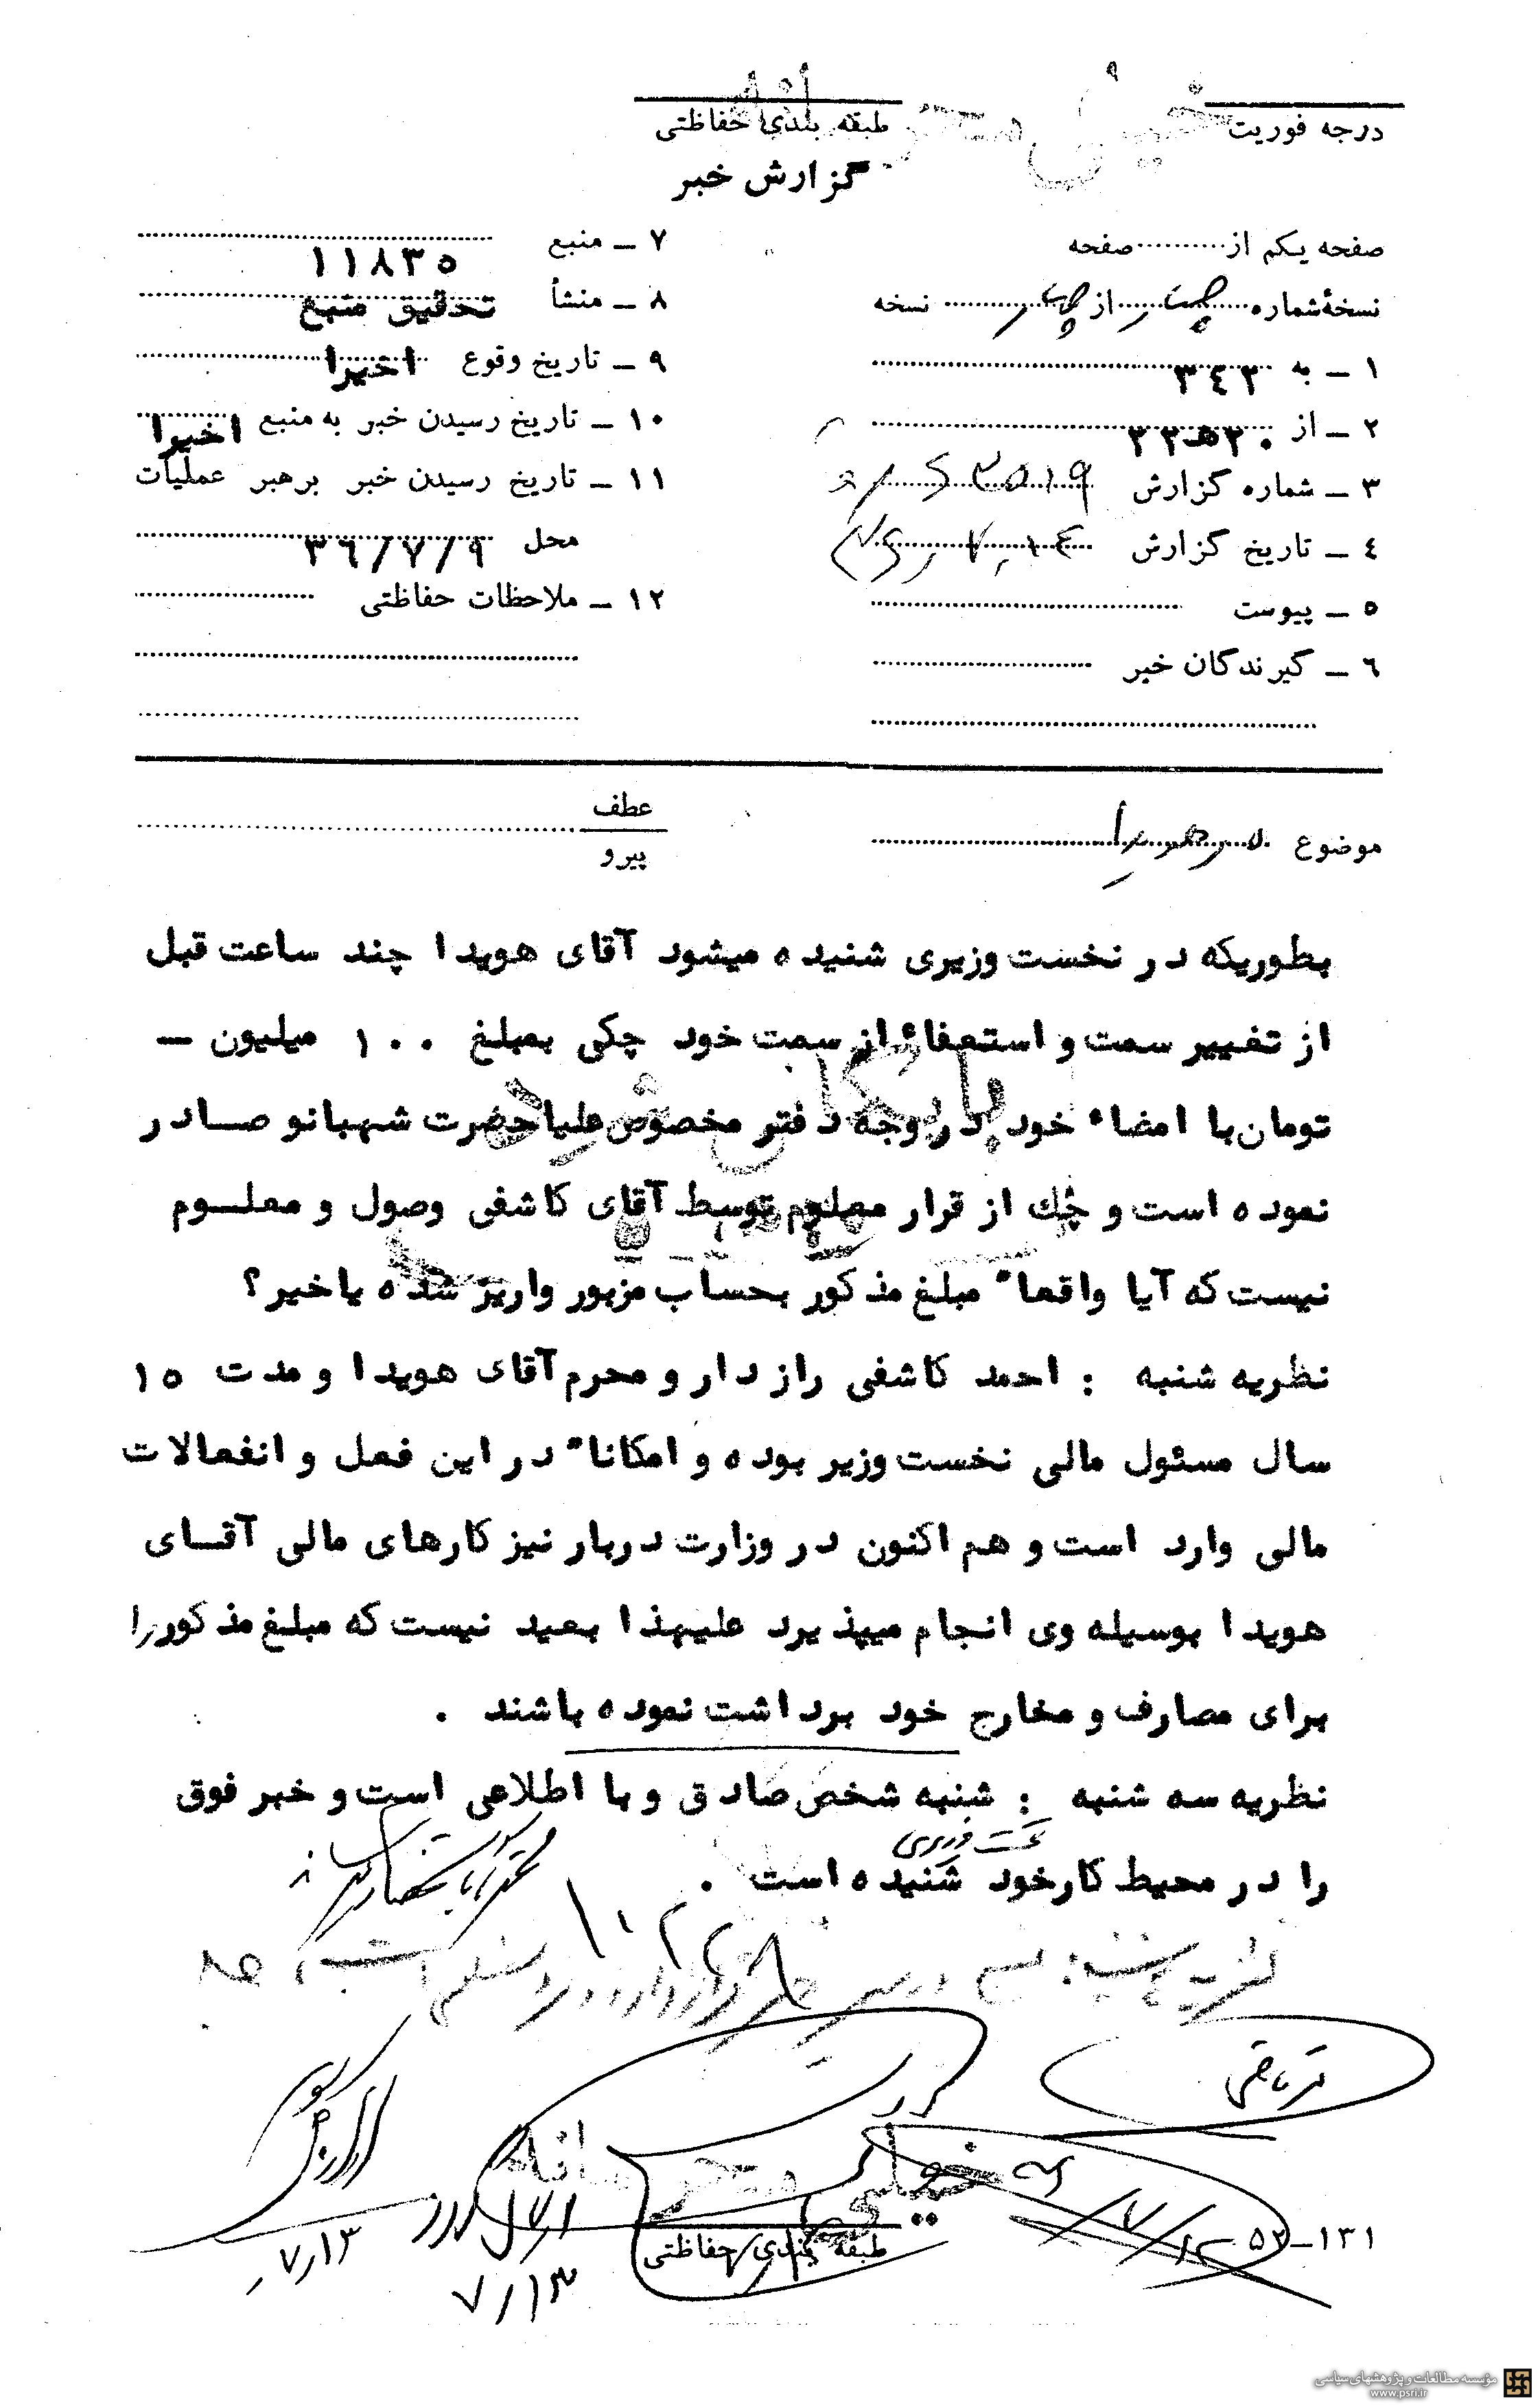 درجه فوریت
خیلی محرمانه
طبقه بندی حفاظتی
گزارش خبر
صفحه یکم از .......... صفحه
نسخهٔ شماره از نسخه
۱ ـ به ۳٤۲
۲ ـ از ۲۰ه‍۲۲
۳ ـ شماره گزارش
٤ ـ تاریخ گزارش
٥ ـ پیوست
٦ ـ گیرندگان خبر
۷ ـ منبع ۱۱۸۳٥
۸ ـ منشأ تحقیق منبع
۹ ـ تاریخ وقوع اخیرا
۱۰ ـ تاریخ رسیدن خبر به منبع اخیرا
۱۱ ـ تاریخ رسیدن خبر برهبر عملیات
محل ۳٦/۷/۹
۱۲ ـ ملاحظات حفاظتی
موضوع
عطف
پیرو
بطوریکه در نخست وزیری شنیده میشود آقای هویدا چند ساعت قبل
از تغییر سمت و استعفاء از سمت خود چکی بمبلغ ۱۰۰ میلیون ـ
تومان با امضاء خود در وجه دفتر مخصوص علیاحضرت شهبانو صادر
نموده است و چک از قرار معلوم توسط آقای کاشفی وصول و معلوم
نیست که آیا واقعا" مبلغ مذکور بحساب مزبور واریز شده یا خیر؟
نظریه شنبه : احمد کاشفی رازدار و محرم آقای هویدا و مدت ۱٥
سال مسئول مالی نخست وزیر بوده و امکانا" در این فعل و انفعالات
مالی وارد است و هم اکنون در وزارت دربار نیز کارهای مالی آقای
هویدا بوسیله وی انجام میپذیرد علیهذا بعید نیست که مبلغ مذکور را
برای مصارف و مخارج خود برداشت نموده باشند .
نظریه سه شنبه : شنبه شخص صادق و با اطلاعی است و خبر فوق
را در محیط کار خود شنیده است .
خیلی محرمانه
طبقه بندی حفاظتی
۷/۱۳
۷/۱۳
۱۳۱ـ٥۲
مؤسسه مطالعات و پژوهشهای سیاسی
www.psri.ir